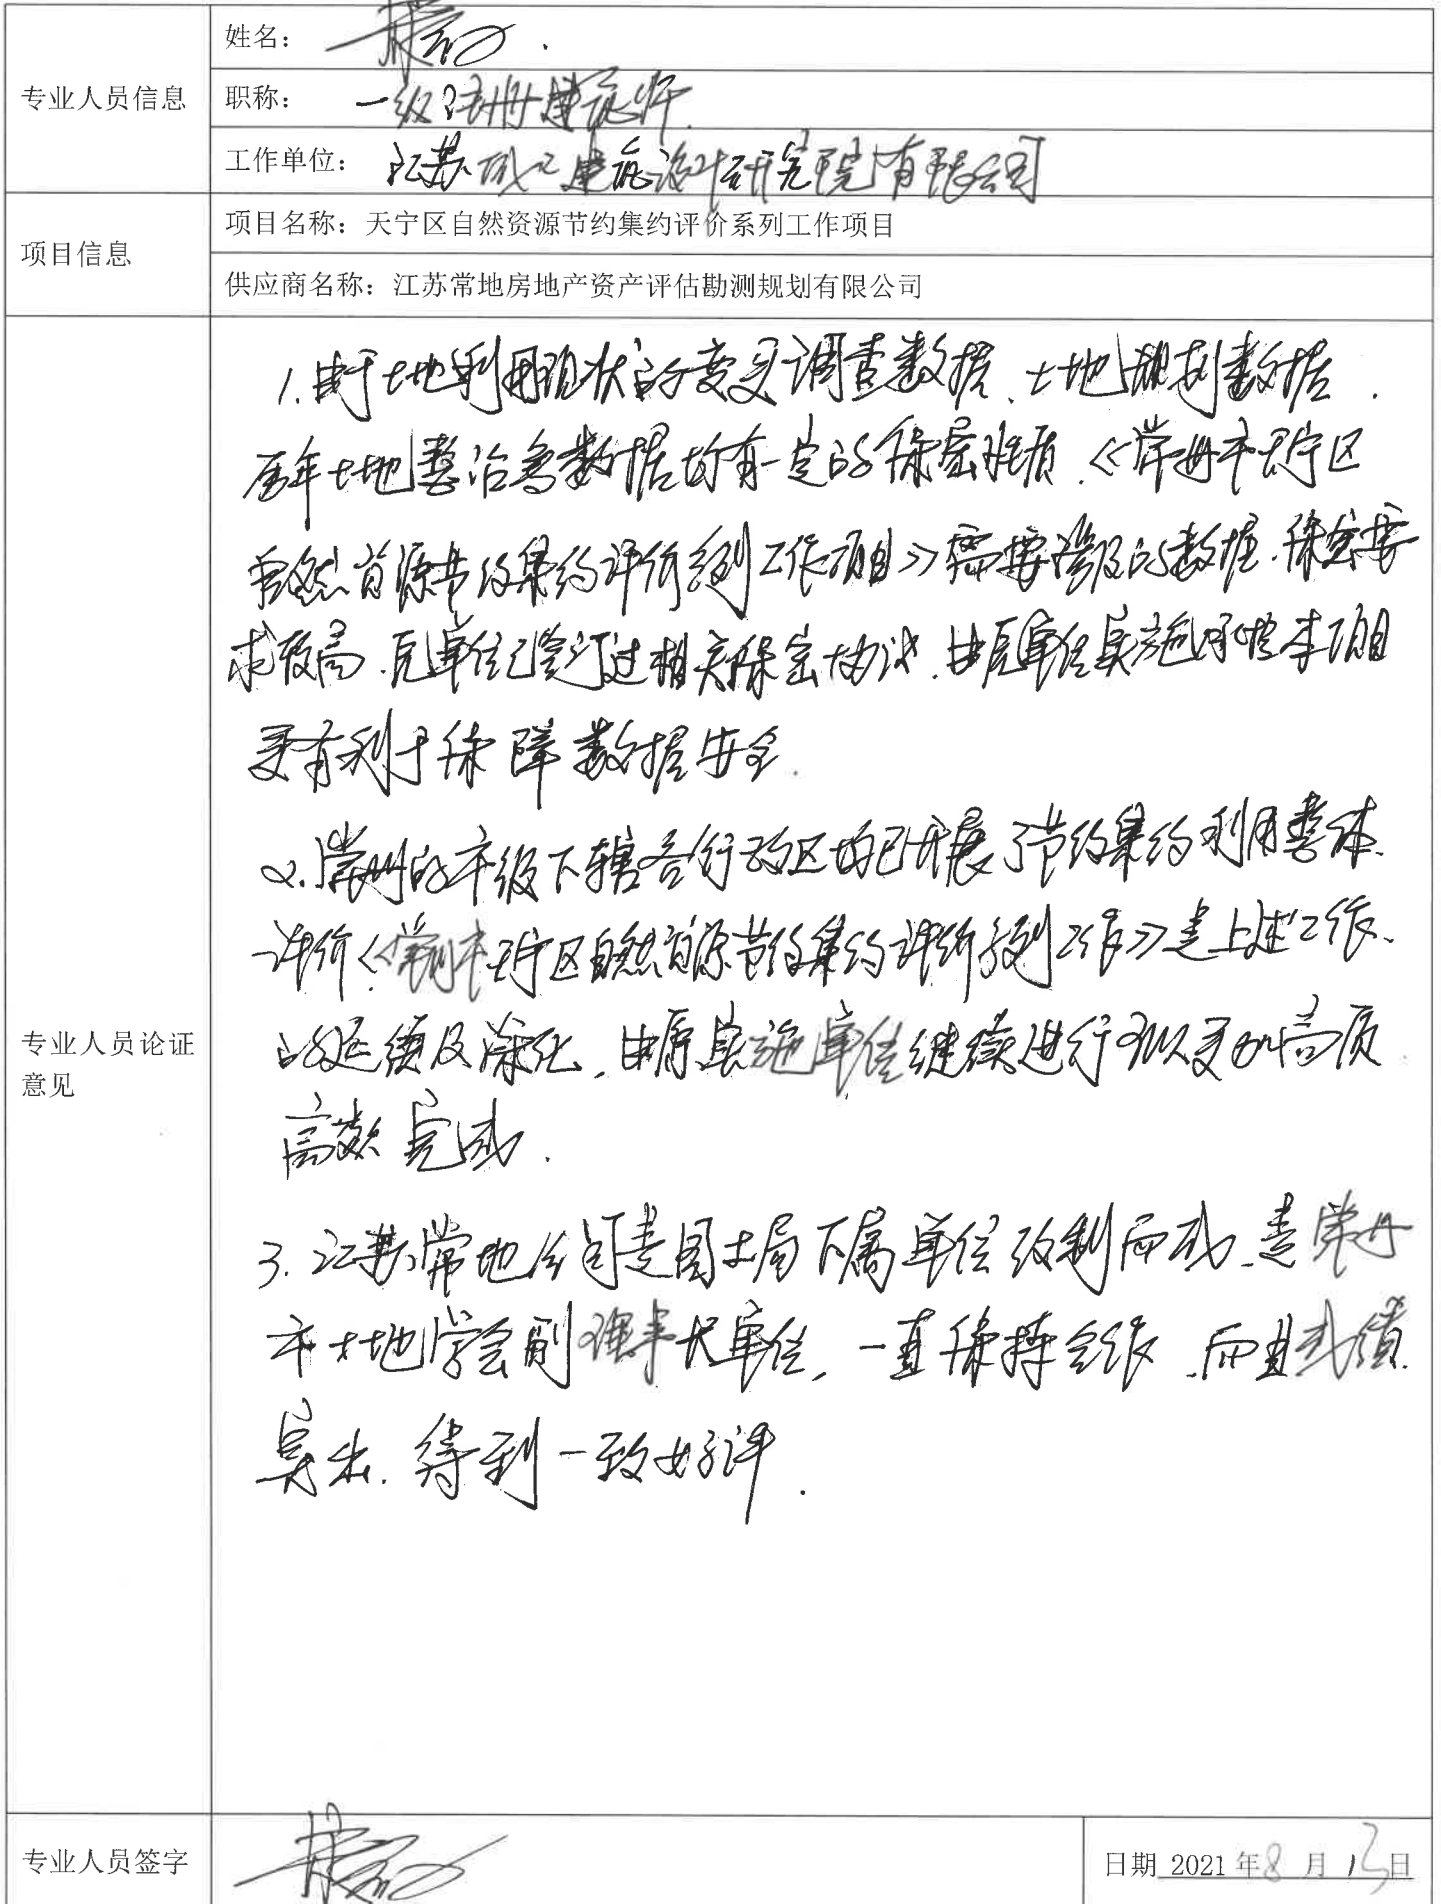 专业人员信息
姓名：
职称： 一级注册建筑师
工作单位： 江苏城工建筑设计研究院有限公司
项目信息
项目名称：天宁区自然资源节约集约评价系列工作项目
供应商名称：江苏常地房地产资产评估勘测规划有限公司
专业人员论证
意见
1.由于土地利用现状的变更调查数据、土地规划数据、
历年土地整治等数据均有一定的保密性质，《常州市天宁区
自然资源节约集约评价系列工作项目》需要涉及的数据，保密要
求较高，原单位已签订过相关保密协议，由原单位实施承担本项目
更有利于保障数据安全.
2.常州的市级下辖各行政区均已开展了节约集约利用整体
评价，《常州市天宁区自然资源节约集约评价系列工作》是上述工作
的延续及深化，由原实施单位继续进行可以更加高质
高效完成.
3.江苏常地公司是国土局下属单位改制而成，是常州
市土地学会副理事长单位，一直保持合作，而且成绩
突出，得到一致好评.
专业人员签字
日期 2021 年 8 月 13 日